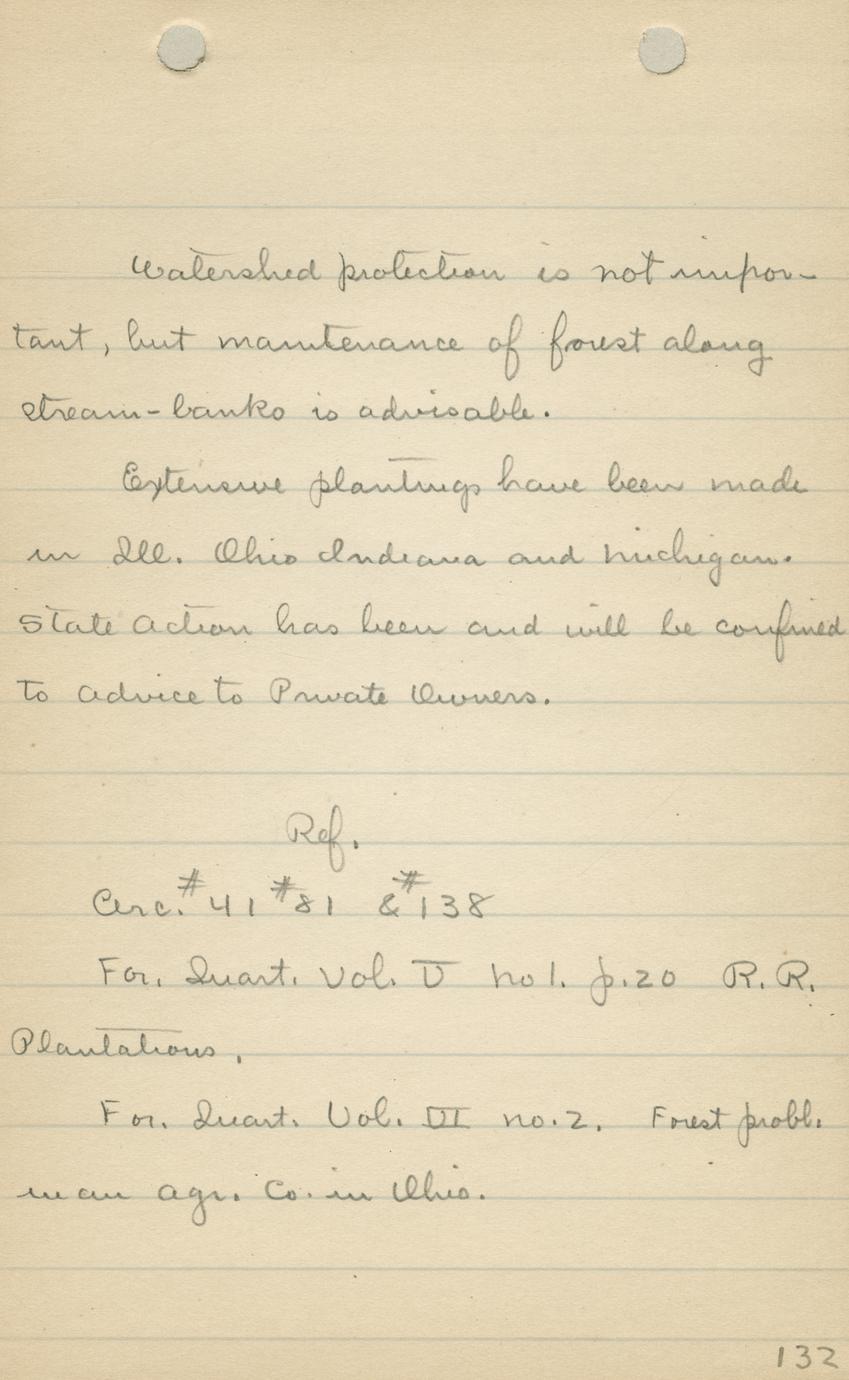 Watershed protection is not impor-
tant, but maintenance of forest along
stream-banks is advisable.
Extensive plantings have been made
in Ill. Ohio Indiana and Michigan.
State Action has been and will be confined
to advice to Private Owners.
Ref.
Circ. #41 #81 & #138
For. Quart. Vol. V no 1. p. 20 R. R.
Plantations.
For. Quart. Vol. VI no. 2. Forest probl.
in an agr. Co. in Ohio.
132